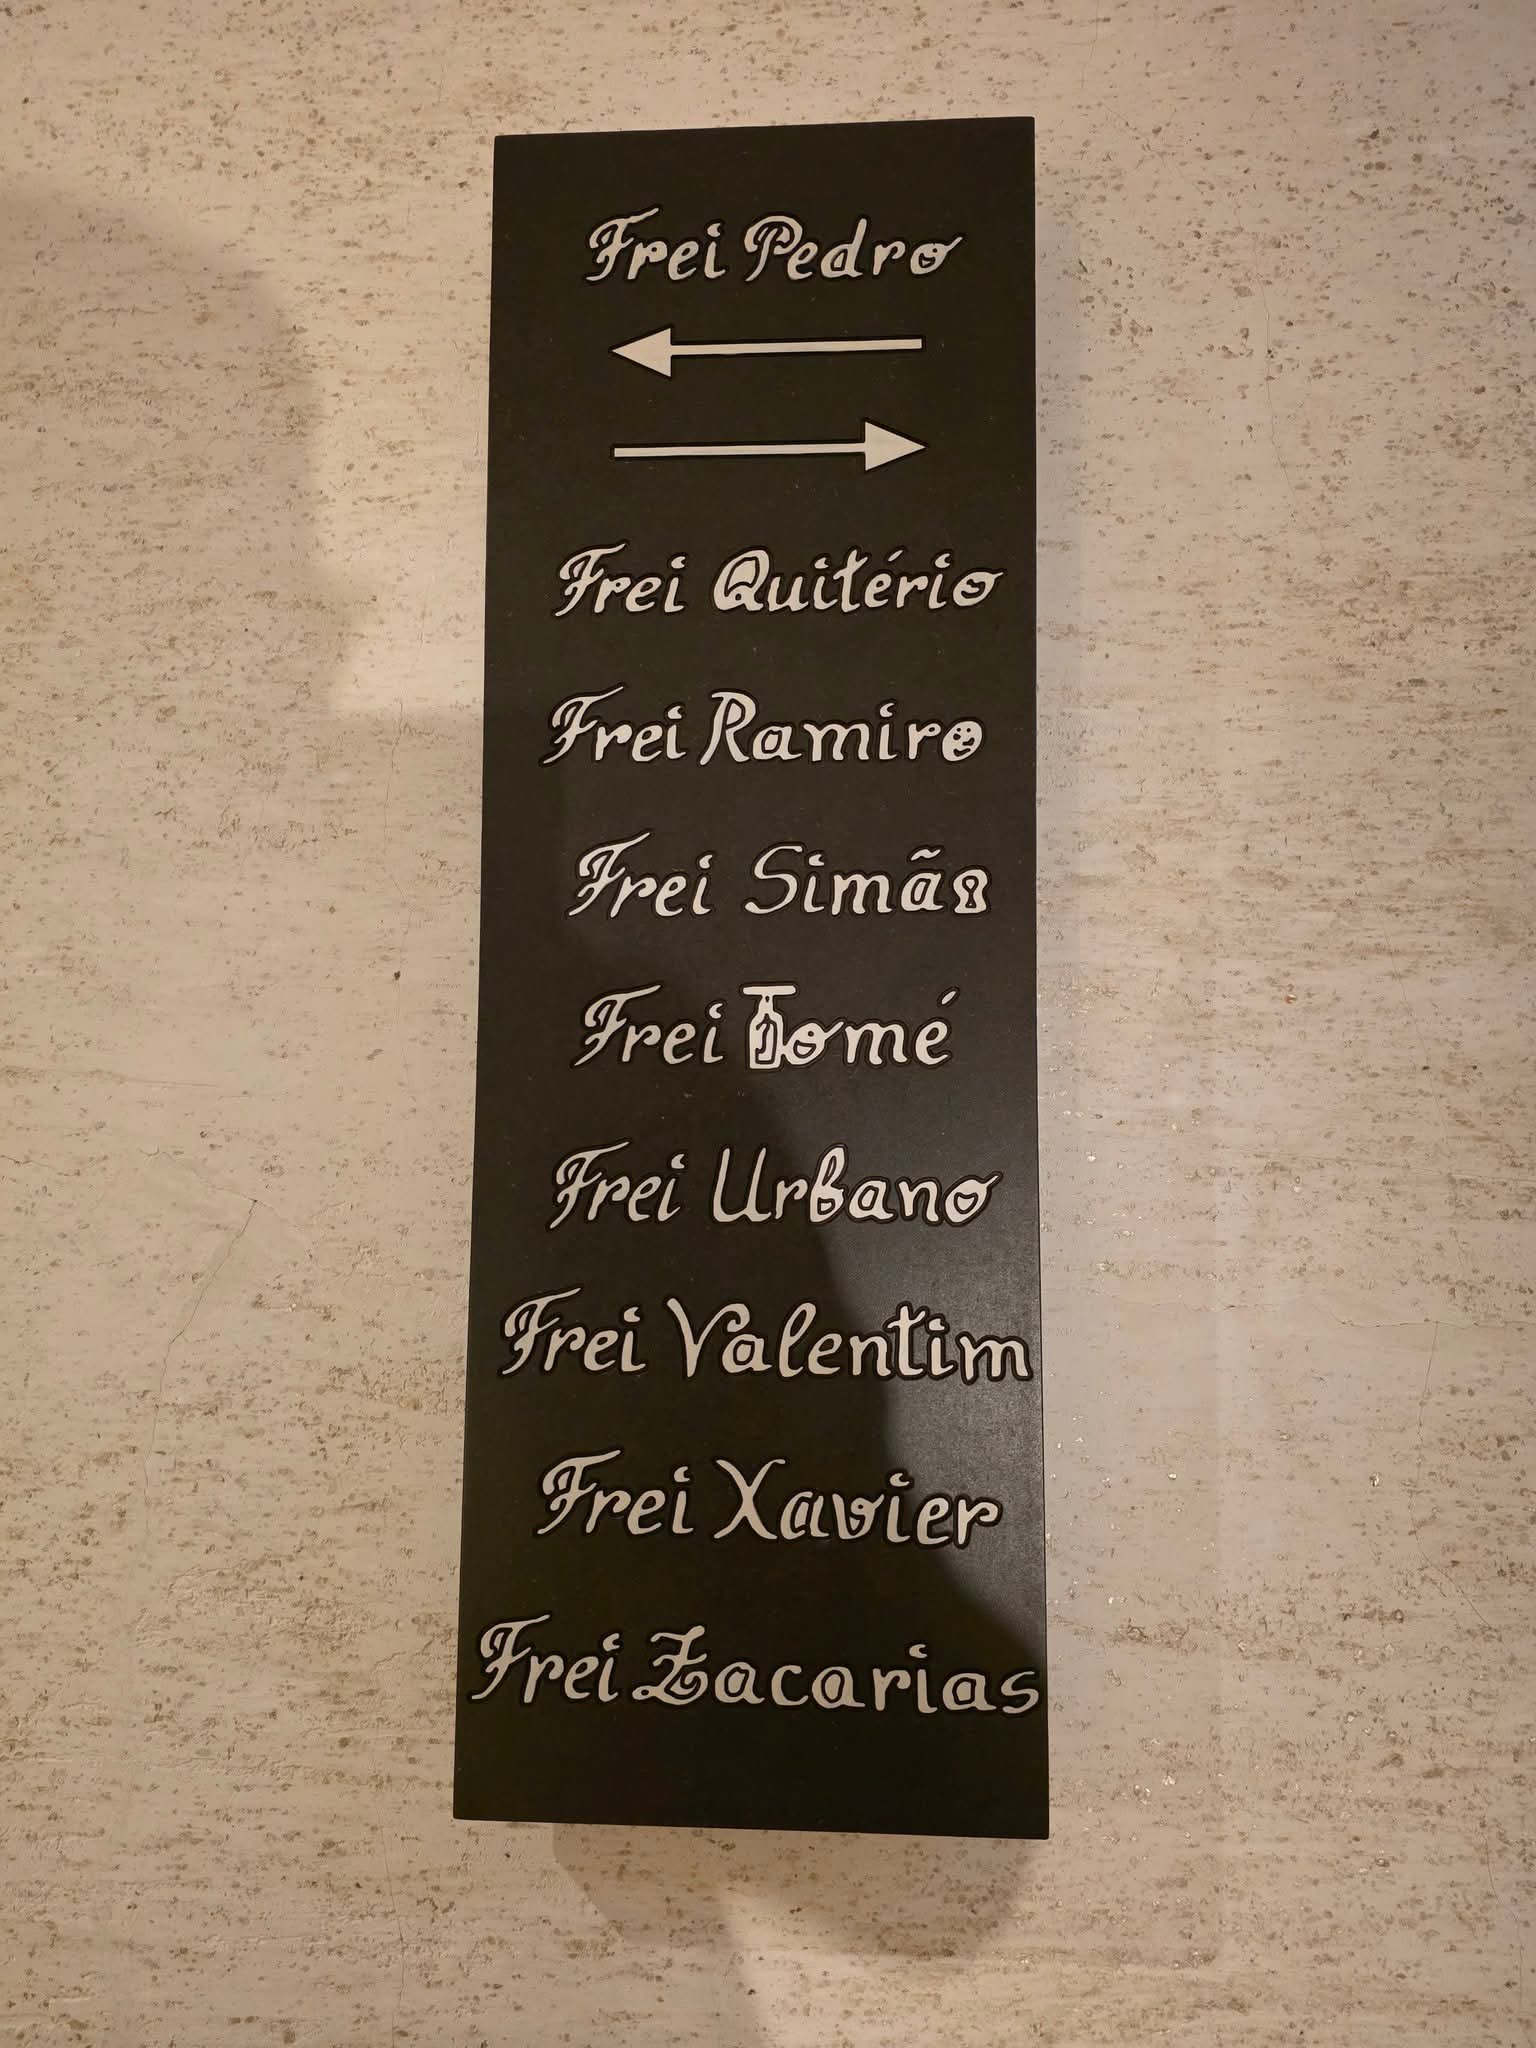 Frei Pedro
Frei Quitério
Frei Ramiro
Frei Simão
Frei Tomé
Frei Urbano
Frei Valentim
Frei Xavier
Frei Zacarias